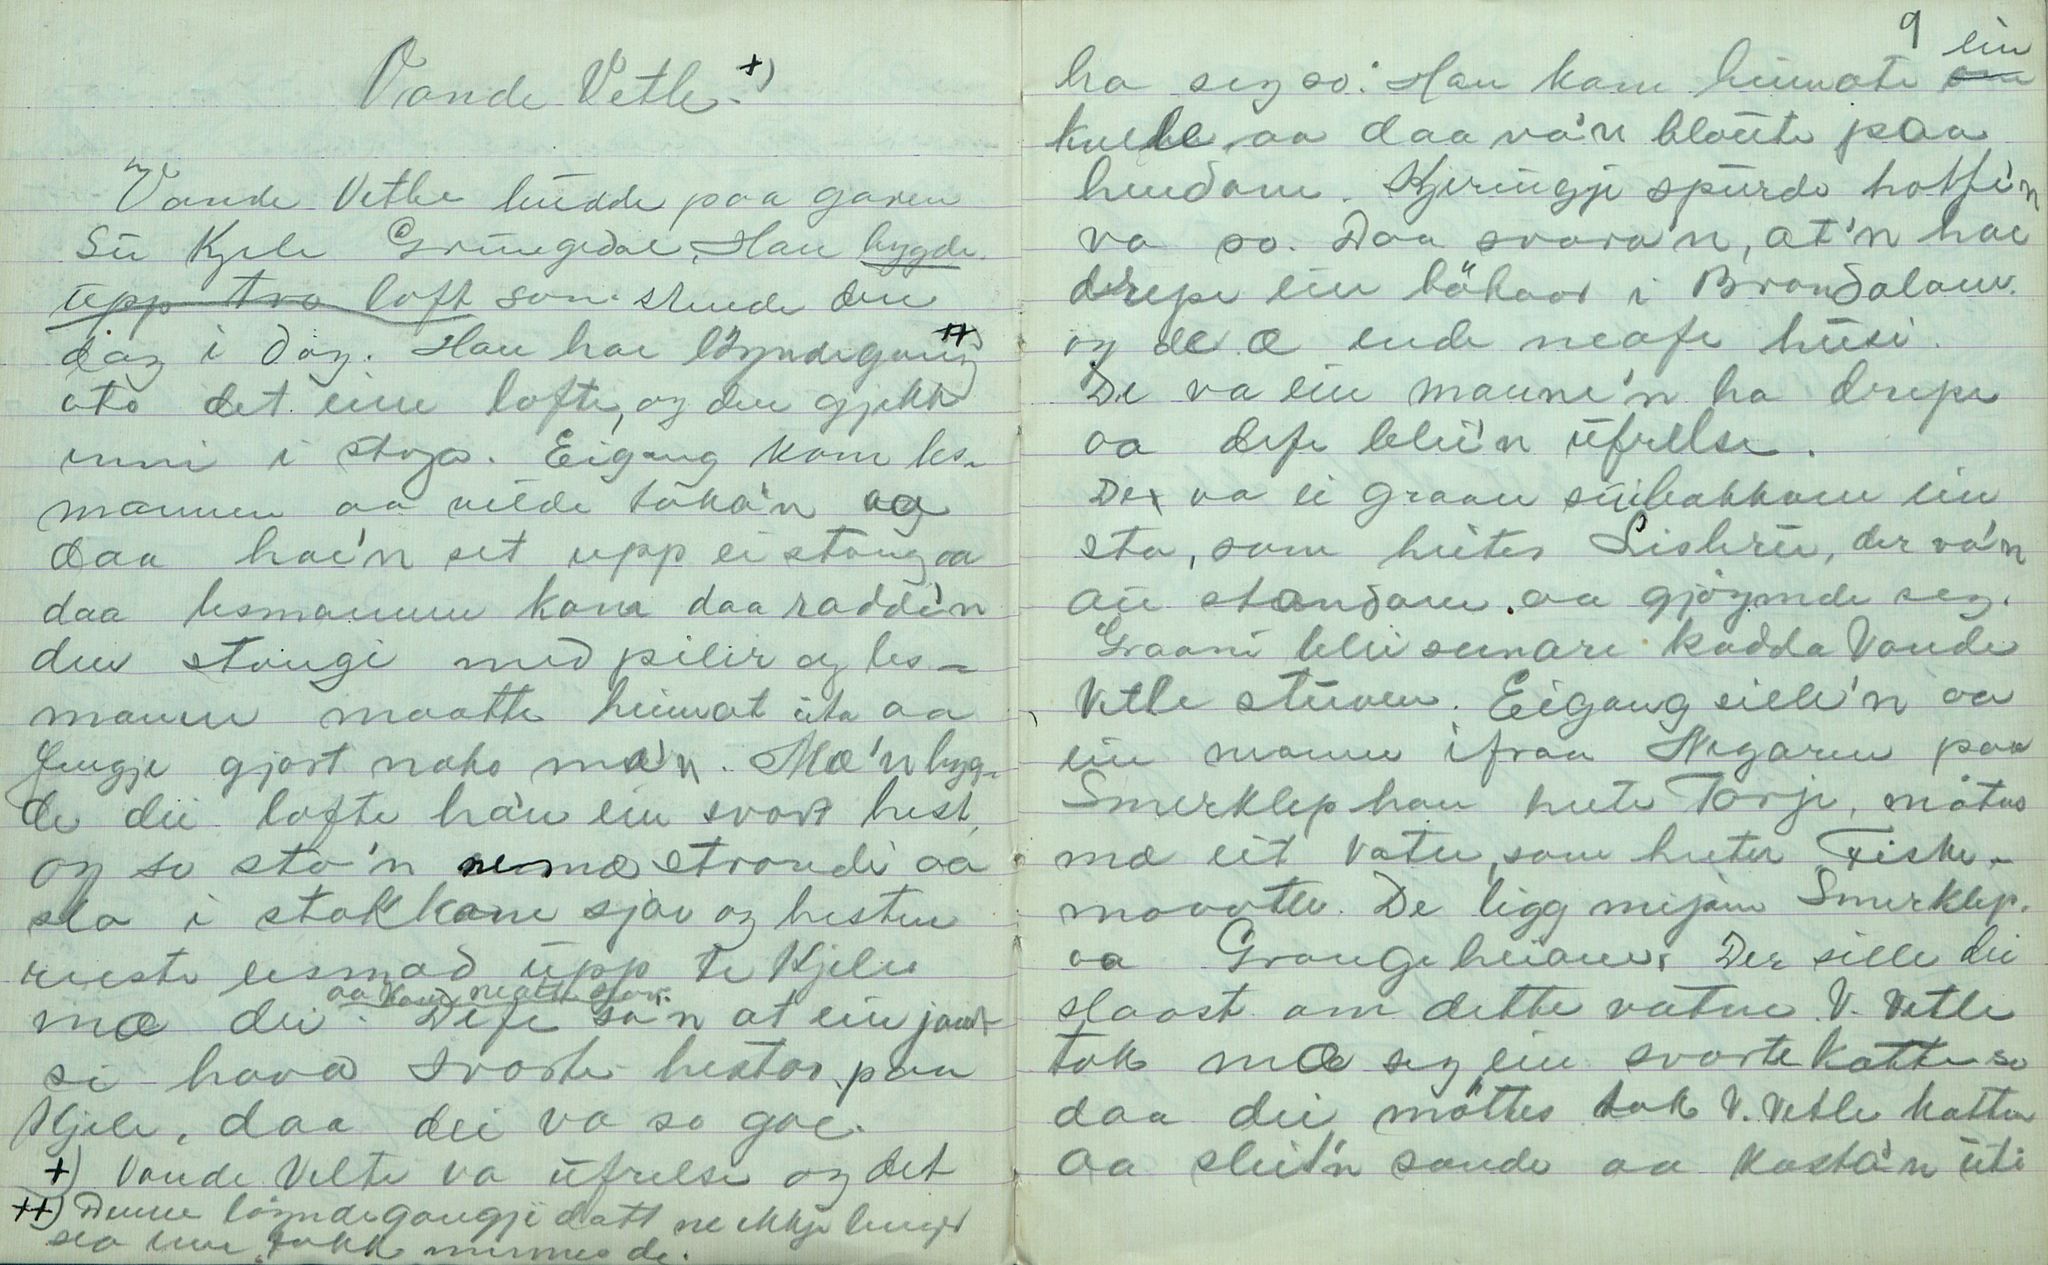 Vonde Vetle. +)
Vonde Vetle budde paa garen
Su Kjele Grungedal. Han bygde
upp tvo loft som stende den
dag i dag. Han hae löyndegang ++)
ote det eine lofte, og den gjekk
inni i stoga. Eigang kom les-
mannen aa vilde taka'n og
daa hae'n set upp ei stong aa
daa lesmannen kom daa radde'n
den stongi med pilir og les-
mannen maatte heimat ita aa
fengje gjort noko mæ'n. Mæ'n byg-
de dei lofte ha'n ein svart hest,
og so sto'n nemæ strondi aa
sla i stokkane sjav og hesten
reiste eismad upp te Kjele
mæ dei. aa kom neatte sjav.
Defe sa'n at ein jamt
si hava svarte hestar paa
Kjele, daa dei va so goe.
+) Vonde Velte va ufrelse og det
++) Denne löyndegongji datt ne ikkje lenger
sea enn folk minnes de.
9
ha seg so: Han kom heimate ein
kvelle aa daa va'n bloute paa
hendom. Kjeringji spurde hotfe'n
va so. Daa svara'n, at'n hae
drepe ein bökaar i Brondalam.
og de æ ende neafe husi.
De va ein manne'n ha drepe
aa defe blei'n ufrelse.
De va ei graan suibakkom ein
sta, som heiter Lislrui, der va'n
au stondom aa gjöymde seg.
Graani blei seinare kadda Vonde
Vetle stuven. Eigang sille'n aa
ein mann ifraa Negaren paa
Smerklep han heite Torje, mötas
mæ eit vatn, som heiter Fiske-
maavatn. De ligg mijom Smerklep.
aa Grungeheiane. Der sille dei
slaast om dette vatne. V. Vetle
tok mæ seg ein svarte katte so
daa dei möttes tok V. Vetle katten
aa sleit'n sonde aa kasta'n uti